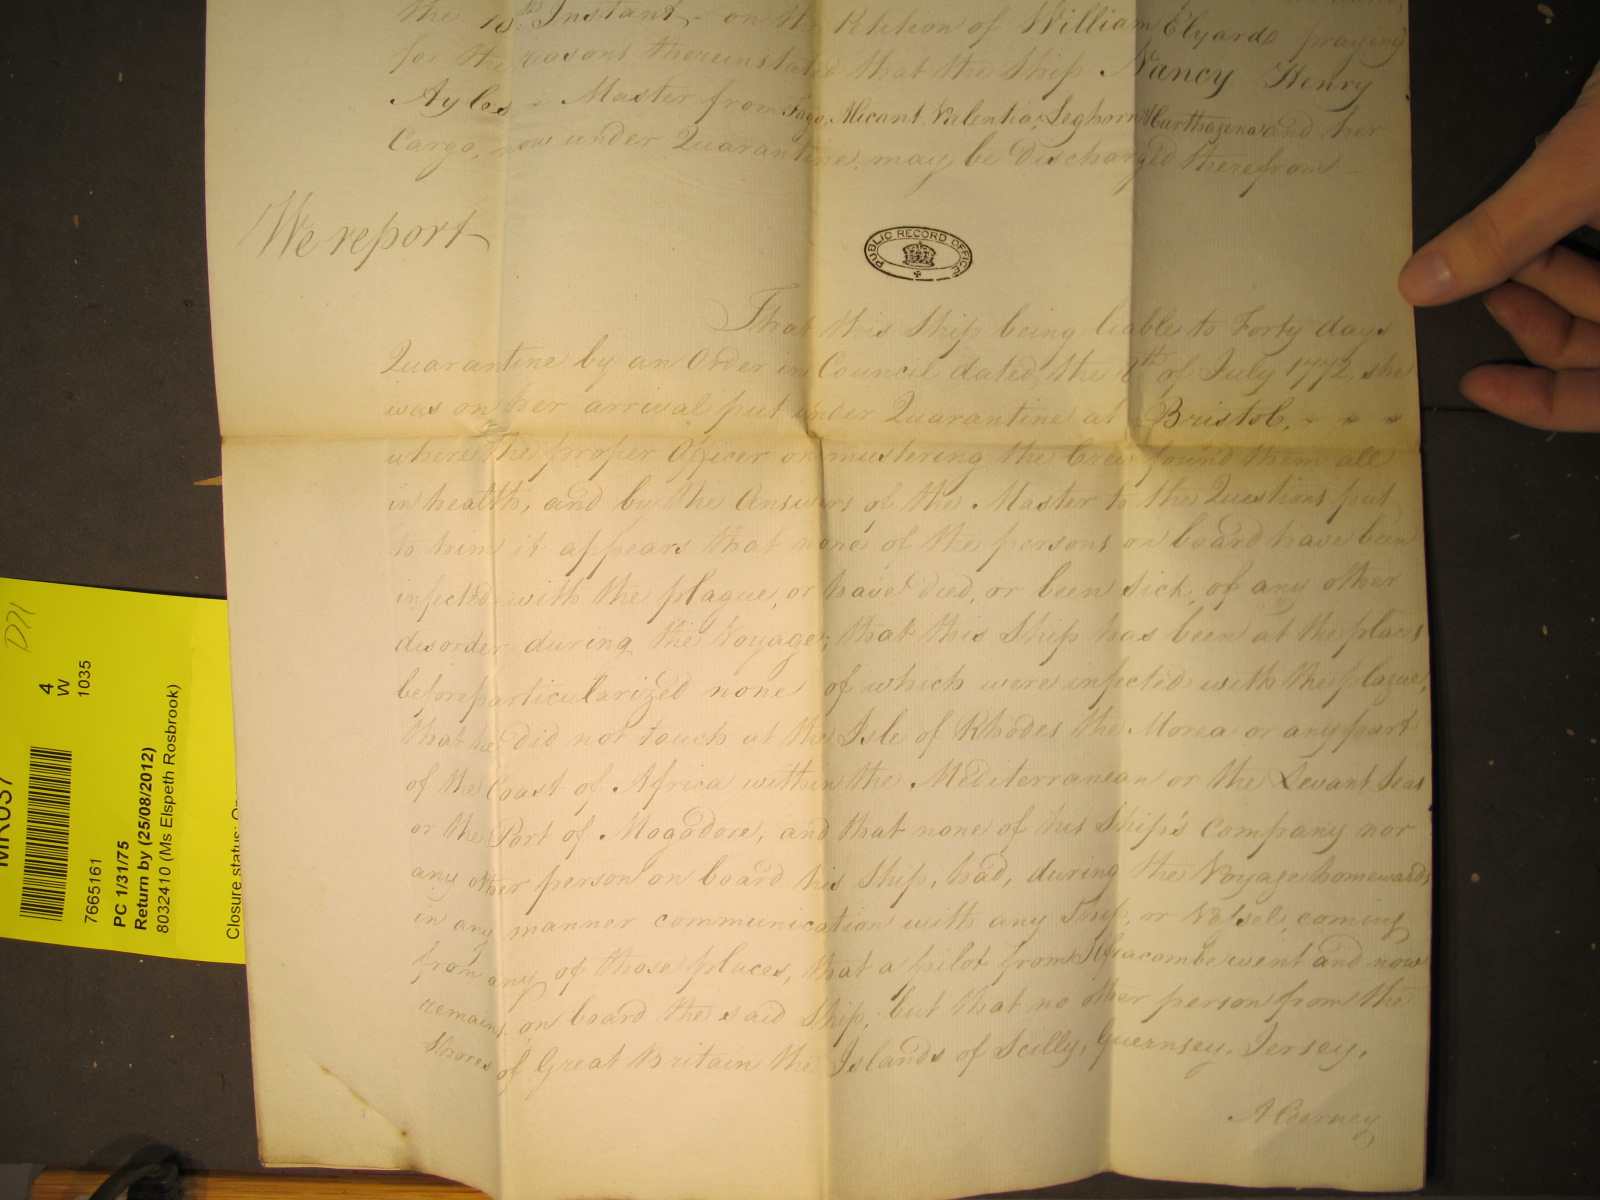 the 18th Instant - on the Petition of William Elyard praying
for the reasons therein stated that the Ship Nancy Henry
Ayles - Master from Alicant, Valentia, Leghorn & Carthagena and her
Cargo, now under Quarantine may be Discharged therefrom -
We report
PUBLIC RECORD OFFICE
That this Ship being liable to Forty days
Quarantine by an Order in Council dated the of July 1772, she
was on her arrival put under Quarantine at Bristol, - - -
where the proper Officer on mustering the Crew found them all
in health, and by the Answers of the Master to the Questions put
to him it appears that none of the persons on board have been
infected with the plague, or have Died, or been sick, of any other
disorder during the Voyage; that this Ship has been at the places
before particularized none of which were infected with the plague,
that he did not touch at the Isle of Rhodes the Morea or any part
of the Coast of Africa within the Mediterranean or the Levant Seas
or the Port of Mogadore, and that none of his Ship's Company nor
any other person on board his Ship, had, during the Voyage homewards
in any manner communication with any Ship or Vessel, coming
from any of those places, that a pilot from Ilfracombe went and now
remains on board the said Ship, but that no other person from the
Shores of Great Britain the Islands of Scilly, Guernsey, Jersey,
Alderney
D71
4
W
1035
MR037
7665161
PC 1/31/75
Return by (25/08/2012)
8032410 (Ms Elspeth Rosbrook)
Closure status: